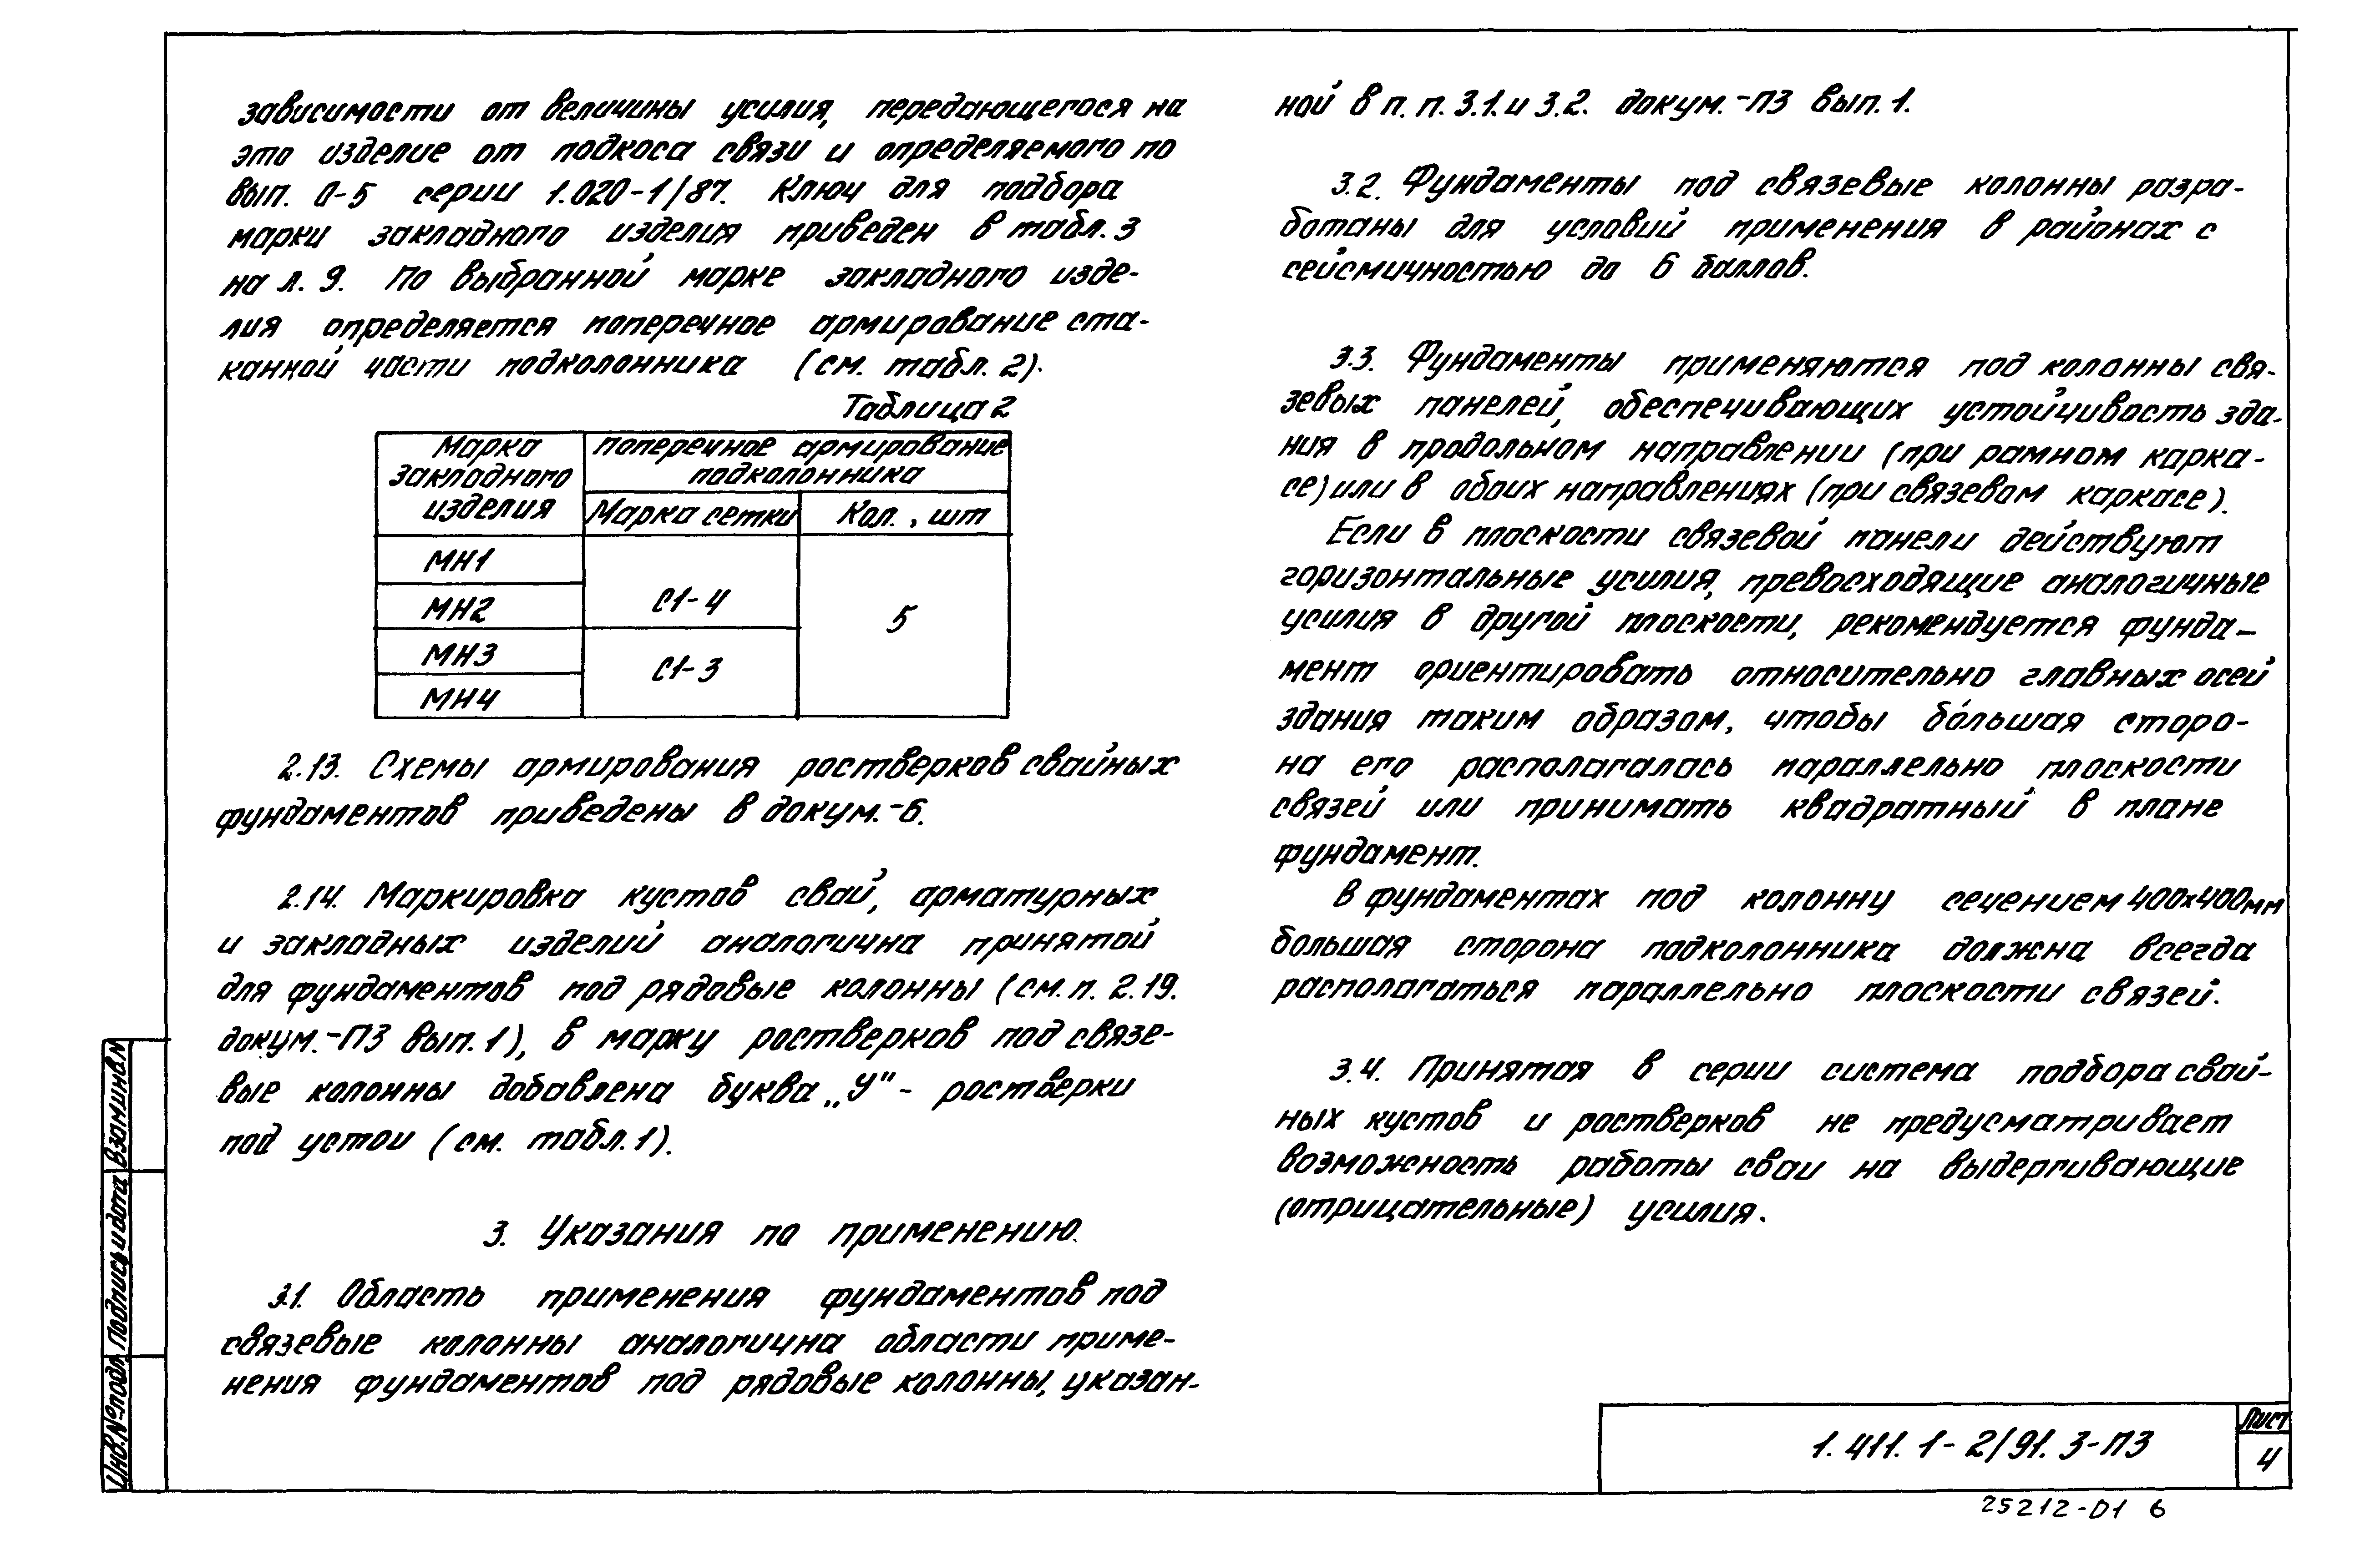 зависимости от величины усилия, передающегося на
это изделие от подкоса связи и определяемого по
вып. 0-5 серии 1.020-1/87. Ключ для подбора
марки закладного изделия приведен в табл. 3
на л. 9. По выбранной марке закладного изде-
лия определяется поперечное армирование ста-
канной части подколонника (см. табл. 2).
Таблица 2
Марка закладного изделия
Поперечное армирование подколонника
Марка сетки
Кол., шт
МН1
МН2
С1-4
5
МН3
С1-3
МН4
2.13. Схемы армирования ростверков свайных
фундаментов приведены в докум.-6.
2.14. Маркировка кустов свай, арматурных
и закладных изделий аналогична принятой
для фундаментов под рядовые колонны (см. п. 2.19.
докум.-ПЗ вып. 1), в марку ростверков под связе-
вые колонны добавлена буква „У" - ростверки
под устои (см. табл. 1).
3. Указания по применению.
3.1. Область применения фундаментов под
связевые колонны аналогична области приме-
нения фундаментов под рядовые колонны, указан-
ной в п. п. 3.1. и 3.2. докум.-ПЗ вып. 1.
3.2. Фундаменты под связевые колонны разра-
ботаны для условий применения в районах с
сейсмичностью до 6 баллов.
3.3. Фундаменты применяются под колонны свя-
зевых панелей, обеспечивающих устойчивость зда-
ния в продольном направлении (при рамном карка-
се) или в обоих направлениях (при связевом каркасе).
Если в плоскости связевой панели действуют
горизонтальные усилия, превосходящие аналогичные
усилия в другой плоскости, рекомендуется фунда-
мент ориентировать относительно главных осей
здания таким образом, чтобы бо́льшая сторо-
на его располагалась параллельно плоскости
связей или принимать квадратный в плане
фундамент.
В фундаментах под колонну сечением 400х400мм
большая сторона подколонника должна всегда
располагаться параллельно плоскости связей.
3.4. Принятая в серии система подбора свай-
ных кустов и ростверков не предусматривает
возможность работы сваи на выдергивающие
(отрицательные) усилия.
Взам.инв.N
Подпись и дата
Инв.№подл.
1.411.1-2/91.3-ПЗ
Лист
4
25212-01 6